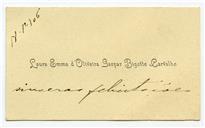 Laura Emma d'Oliveira Gaspar Bizotte Carvalho
sinceras felicitações